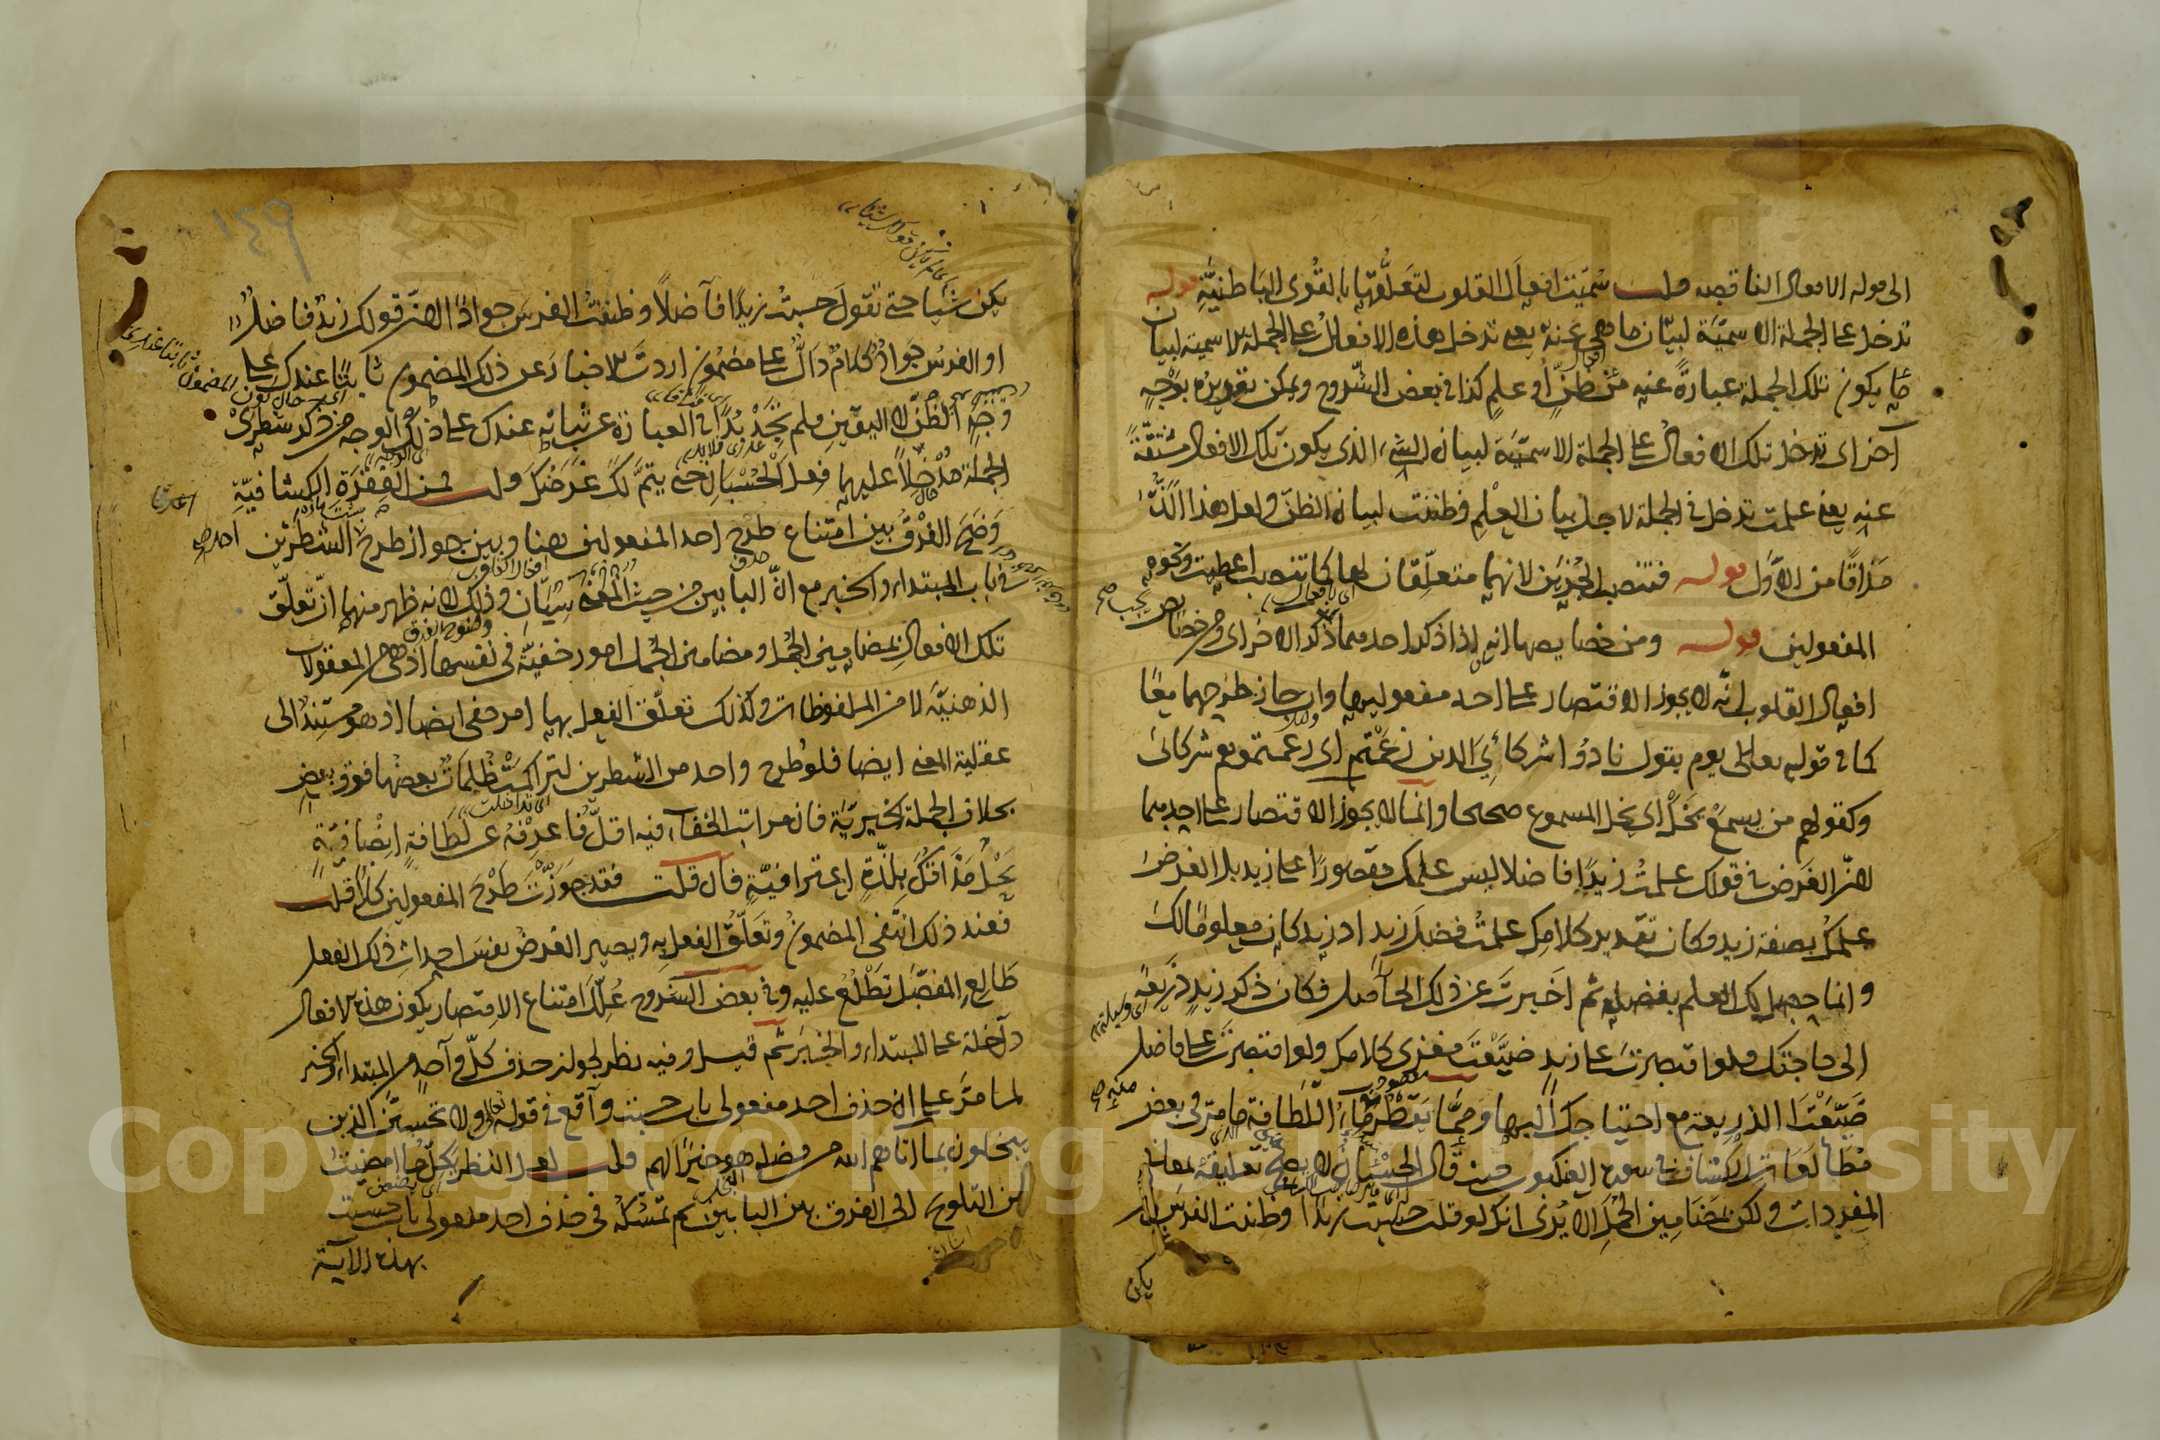 الى قوله الافعال الناقصة قلت سُمّيت افعال القلوب لتعلّقها بالقُوى الباطنيّة قوله
تدخل على الجملة الاسميّة لبيان ما هى عنه يعنى تدخل هذه الافعال على الجملة الاسمية لبيان
ما يكون تلك الجملة عبارةً عنه من ظنّ أو علم كذا فى بعض الشروح ويمكن تقريره بوجهٍ
آخر اى تدخل تلك الافعال على الجملة الاسميّة لبيان الشىء الذى يكون تلك الافعال مشتقّةً
عنه يعنى علمت تدخل فى الجملة لاجل بيان العلم وظننت لبيان الظنّ ولعل هذا الذّ
مذاقًا من الاوّل قوله فتنصب الجزئين لانهما متعلّقان لها كما تنصب اعطيت ونحوه
المفعولين قوله ومن خصايصها انه اذا ذكر احدهما ذكر الاخر اى ومن خصايص
افعال القلوب انّه لا يجوز الاقتصار على احد مفعوليها وان جاز طرحهما معًا
كما فى قوله تعالى يوم يقول نادوا شركائى الذين زعمتم اى زعمتموهم شركائى
وكقولهم من يسمع يخل اى يخل المسموع صحيحا وانما لا يجوز الاقتصار على احدهما
لانّ الغرض فى قولك علمت زيدًا فاضلا ليس علمك مقصورًا على زيد بل الغرض
علمك بصفة زيد وكان تقدير كلامك علمتُ فضل زيد اذ زيد كان معلومًا لك
وانما حصل لك العلم بفضله ثم اخبرت عن ذلك الحاصل فكان ذكر زيد ذريعةً
الى حاجتك فلو اقتصرت على زيد ضيّعت مغزى كلامك ولو اقتصرت على فاضل
ضيّعت الذريعة مع احتياجك اليها وممّا يقطر ماء اللطافة ما مرّ فى بعض
مطالعات الكشاف فى سورة العنكبوت حيث قال الحسبان لا يصح تعليقه بمعانى
المفردات ولكن بمضامين الجمل الا يُرى انك لو قلت حسبت زيدًا وظننت الفرس لم
يكن
١٤٩
يكن شيأ حتى تقول حسبتُ زيدًا فاضلاً وظننتُ الفرس جوادًا لانّ قولك زيدٌ فاضلٌ
او الفرسُ جوادٌ كلامٌ دالٌّ على مضمون اردت الاخبار عن ذلك المضمون ثابتًا عندك على
وجه الظنّ لا اليقين فلم تجد بُدًّا فى العبارة عن ثباته عندك على ذلك الوجه من ذكر شطرى
الجملة مُدخلاً عليهما فعل الحسبان حتى يتمّ لك غرضك قلت فمن الفقرة الكشافيّة
وضح الفرق بين امتناع طرح احد المفعولين هنا وبين جواز طرح احد الشطرين
فى باب المبتداء والخبر مع انّ البابين من حيث المعنى سيّان وذلك لانه ظهر منها انّ تعلّق
تلك الافعال بمضامين الجمل ومضامين الجمل امور خفيّة فى نفسها اذ هى من المعقولات
الذهنيّة لا من الملفوظات وكذلك تعلّق الفعل بها امر خفى ايضا اذ هو مستند الى
عقلية المعنى ايضا فلو طرح واحد من الشطرين لتراكمت ظلمات بعضها فوق بعض
بخلاف الجملة الخبريّة فان مراتب الخفاء فيه اقلّ فاعرفه عن لطافة انصافيّةٍ
تجل مذاقك بلذّةٍ اعترافيّةٍ فان قلت فقد جوّزت طرح المفعولين كلا قلت
فعند ذلك انتفى المضمون وتعلّق الفعل به ويصير الغرض نفس احداث ذلك الفعل
طالع المفصّل تطّلع عليه وفى بعض الشروح عُلّل امتناع الاقتصار بكون هذه الافعال
داخلة على المبتداء والخبر ثم قيل وفيه نظر لجواز حذف كلّ واحد من المبتداء والخبر
لما مرّ على ان حذف احد مفعولى باب حسبت واقع فى قوله تعالى ولا تحسبنّ الذين
يبخلون بما اتاهم الله من فضله هو خيرًا لهم قلت لعل النظر يحلّ ما امضيت
من التلويح الى الفرق بين البابين ثم تمسّكه فى حذف احد مفعولى باب حسبت
بهذه الآية